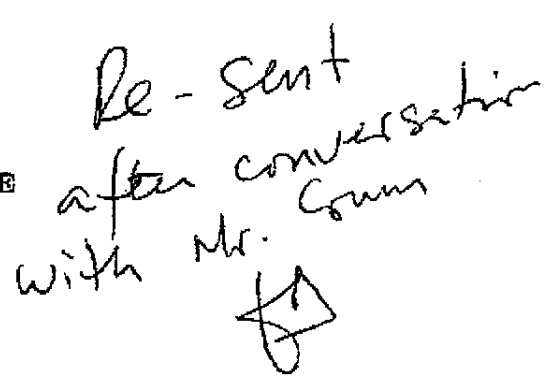 Re-sent
after conversation
with Mr. Crum